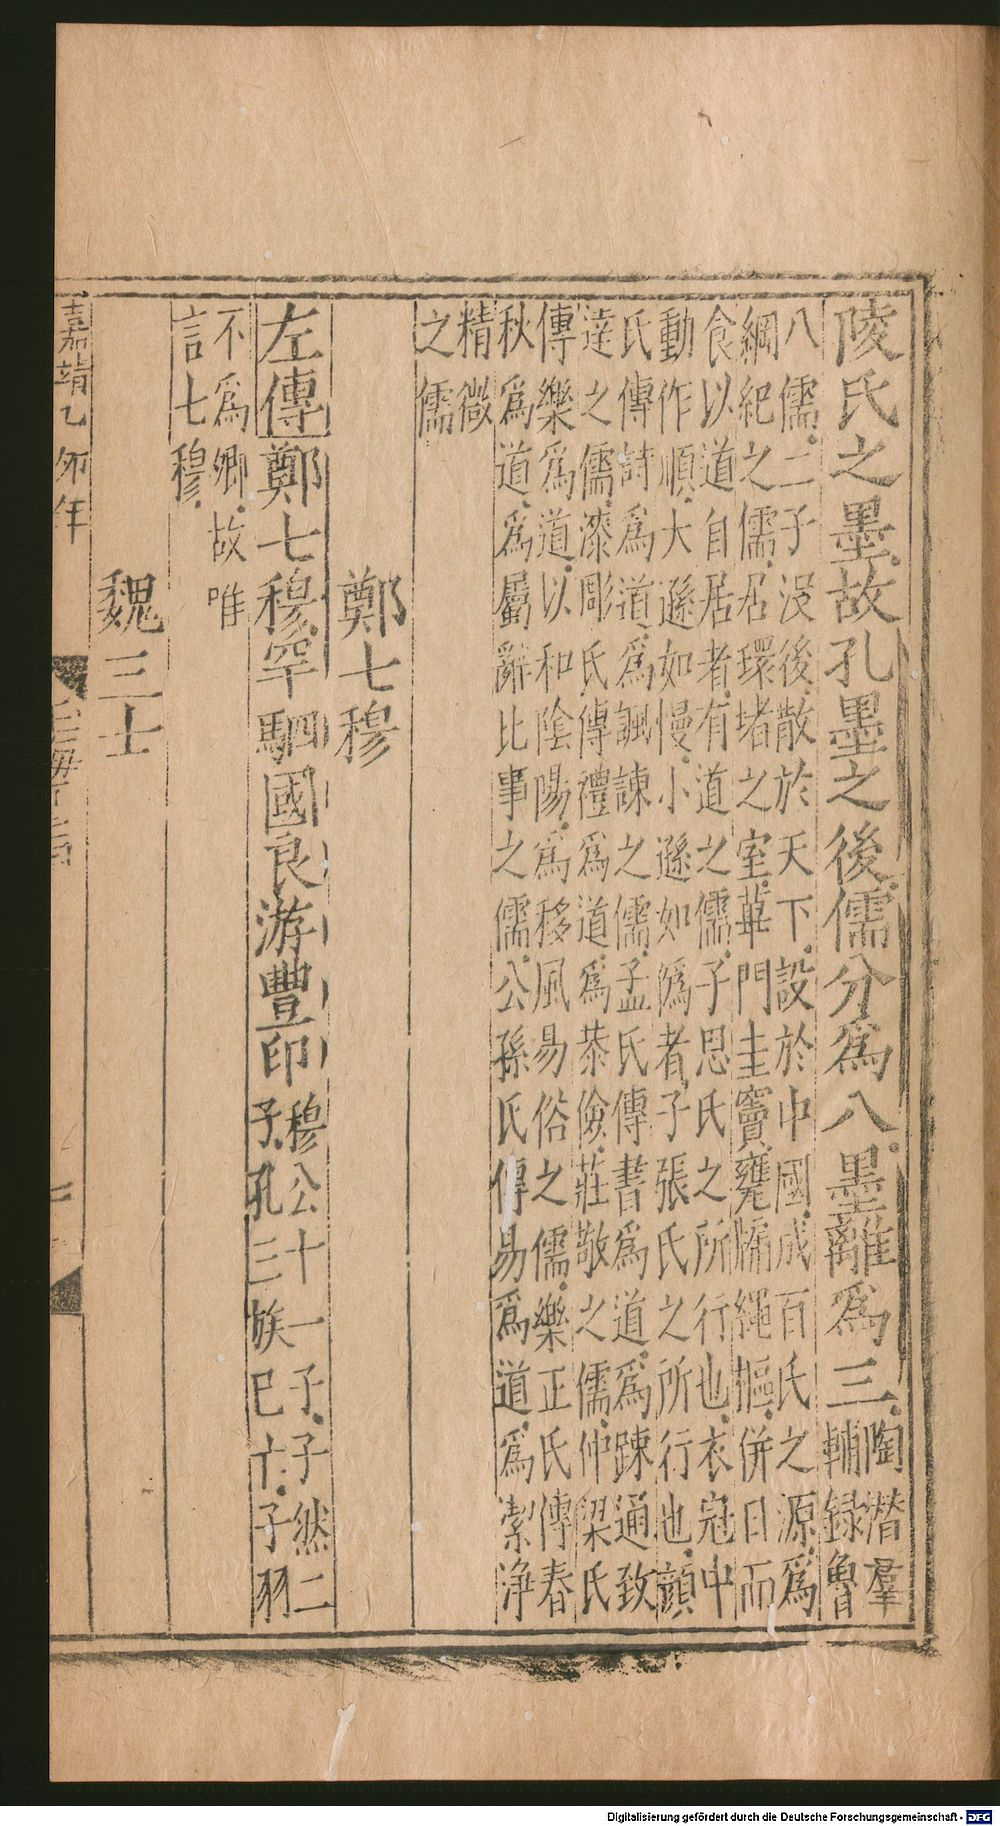 陵氏之墨故孔墨之後儒分爲八墨離爲三陶潛羣
輔録魯
八儒二子沒後散於天下設於中國成百氏之源爲
綱紀之儒居環堵之室蓽門圭竇甕牖繩樞併日而
食以道自居者有道之儒子思氏之所行也衣冠中
動作順大遜如慢小遜如僞者子張氏之所行也顔
氏傳詩爲道爲諷諫之儒孟氏傳書爲道爲踈通致
逹之儒漆彫氏傳禮爲道爲恭儉莊敬之儒仲梁氏
傳樂爲道以和陰陽爲移風易俗之儒樂正氏傳春
秋爲道爲屬辭比事之儒公孫氏傳易爲道爲潔浄
精微
之儒
鄭七穆
左傳鄭七穆罕駟國良游豐印穆公十一子子然二
子孔三族已亡子羽
不爲卿故唯
言七穆
魏三士
嘉靖乙夘年
Digitalisierung gefördert durch die Deutsche Forschungsgemeinschaft - DFG